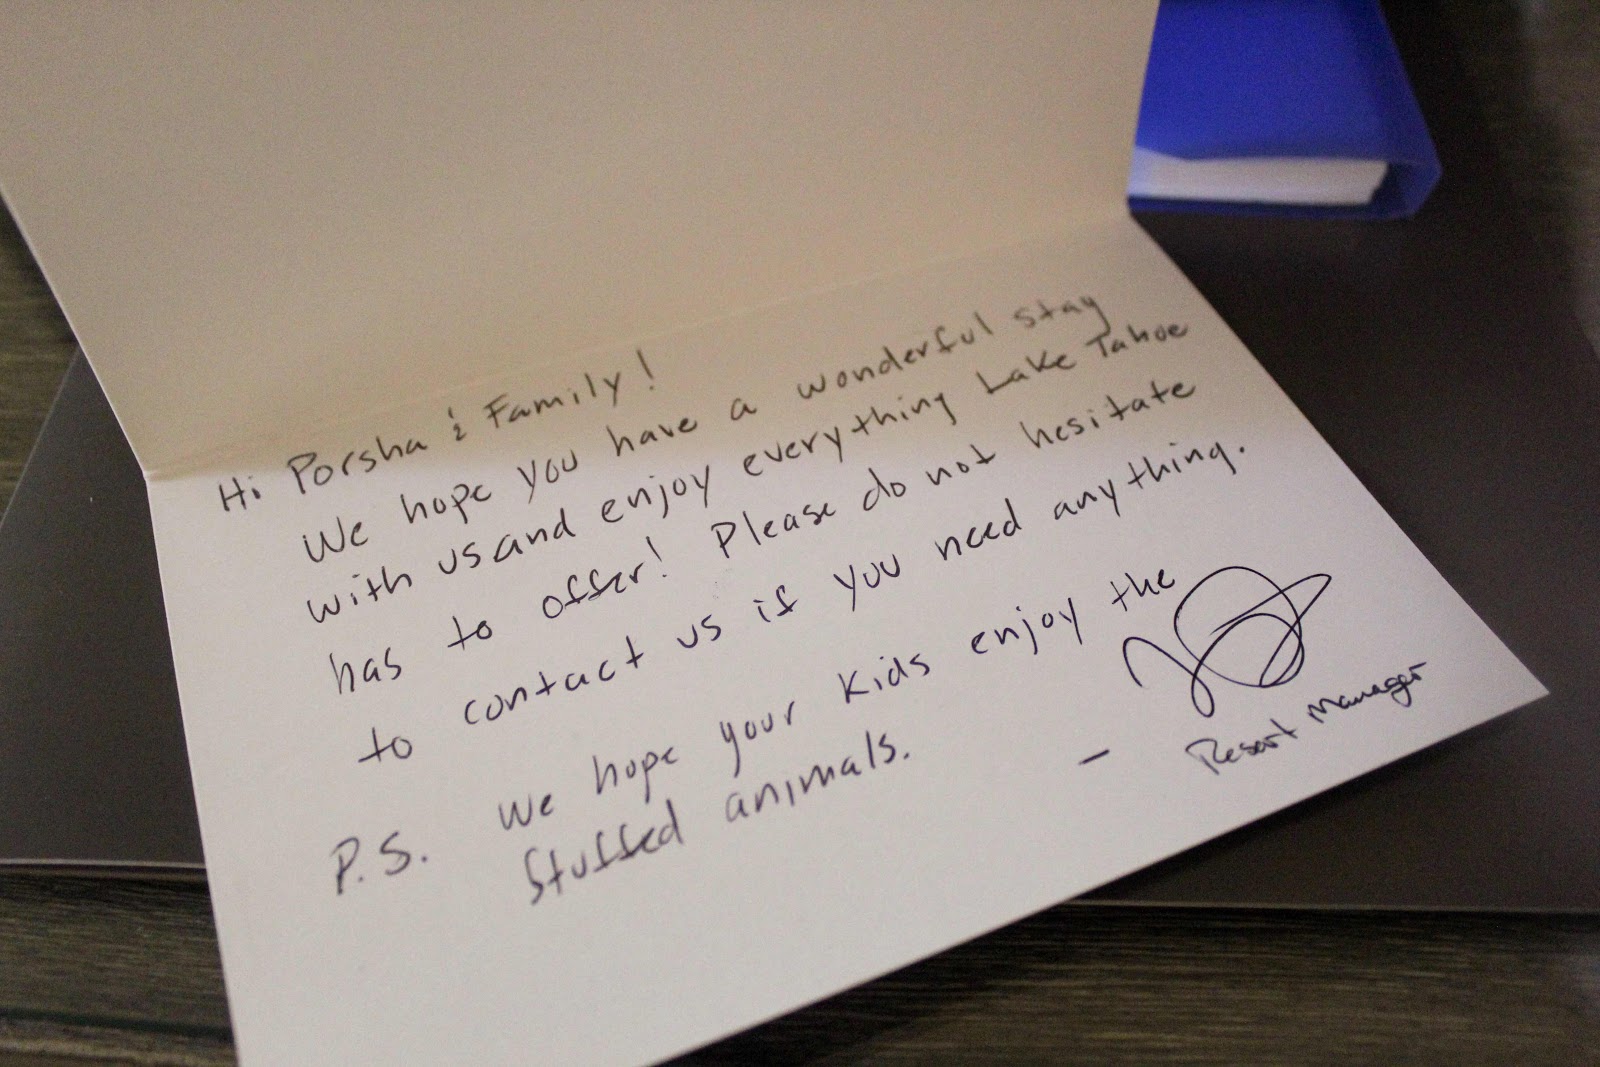 Hi Porsha & Family!
We hope you have a wonderful stay
with us and enjoy everything Lake Tahoe
has to offer! Please do not hesitate
to contact us if you need anything.
P.S. We hope your kids enjoy the
stuffed animals.
-
Resort Manager